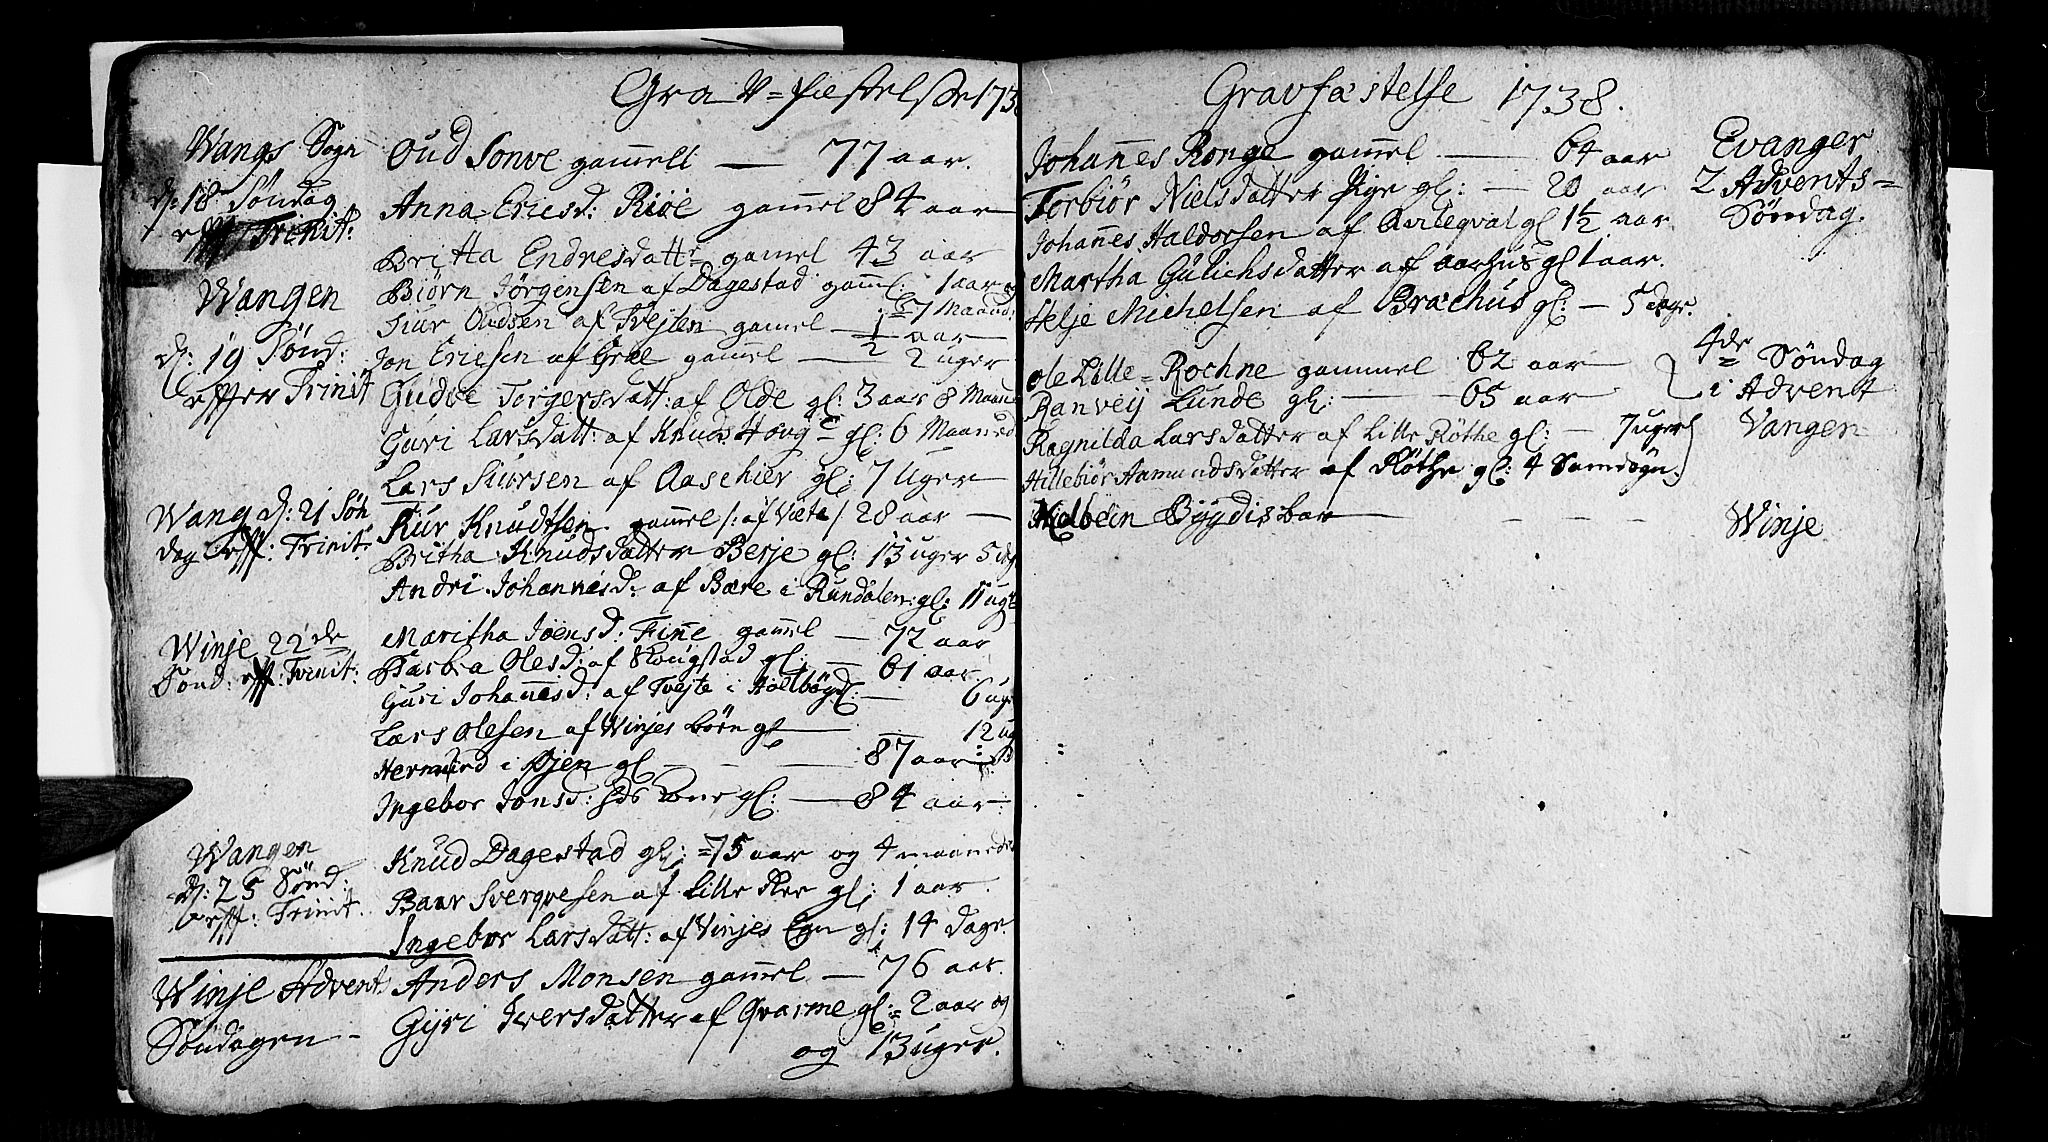 Gravfæstelse 173
Wangs Sogn
d: 18 Søndag
Trinit:
Oud Sonve gam̄ell — 77 aar.
Anna Ericsd: Riøe gam̄el 84 aar
Britta Endresdattr gam̄el 43 aar
Wangen
d: 19 Sønd:
effter Trinit
Biørn Jørgensen af Dagestad gam̄l: 1 aar og
7 Maaned:
Siur Oudsen af Tvejten gam̄el — 1/2 aar
Jon Ericsen af Græe gam̄el — 2 uger
Gudve Torgersdatt: af Olde gl: 3 aar 8 Maan
Guri Larsdatt: af Knuds Houg gl: 6 Maaned
Lars Siursen af Aaschier gl: 7 Uger
Wang d: 21 Søn
dag eff: Trinit:
Siur Knudtsen gam̄el /: af Væte / 28 aar —
Britha Knudsdatter Berje gl: 13 uger 5 dag
Andri Johannesd: af Bære i Rundalen: gl: 11 ug
Winje 22de
Sønd: eff: Trinit:
Maritha Joensd: Fin̄e gam̄el — 72 aar
Barbra Olesd: af Rougstad gl: — 61 aar
Guri Johan̄esd: af Tvejte i Holbøgd: — 6 uge
Lars Olesen af Winjes Børn gl — 12 ug
Hermund i Øjen gl — 87 aar
Ingebor Jonsd: gl: — 84 aar
Wangen
d: 25 Sønd:
eff: Trinit.
Knud Dagestad gl: = 75 aar og 4 maaneder
Baar Sverquesen af Lille Ree gl: 1 aar.
Ingebor Larsdatt: af Vinjes Egn gl: 14 dage.
Winje Advent
Søndagen —
Anders Monsen gam̄el — 76 aar.
Gyri Iversdatter af Qvarme gl: 2 aar og
og 13 uger.
Gravfæstelse 1738.
Evanger
2 Advents=
Søndag.
Johan̄es Ronge gam̄el — 64 aar
Torbiør Nielsdatter Pige gl: — 20 aar
Johan̄es Haldorsen af Avleqval gl 1½ aar
Martha Gulichsdatter af Aarhus gl 1 aar.
Helje Michelsen af Brachus gl: — 5 dage.
4de Søndag
i Advent
Vangen
Ole Lille=Rochne gammel 62 aar
Ranveij Lunde gl: — 65 aar
Ragnilda Larsdatter af Lille Røthe gl: — 7 uger
Hillebiør Aamundsdatter af Røthe gl: 4 Samdøgn.
Kolbein Bygdisbar — — — —
Winje